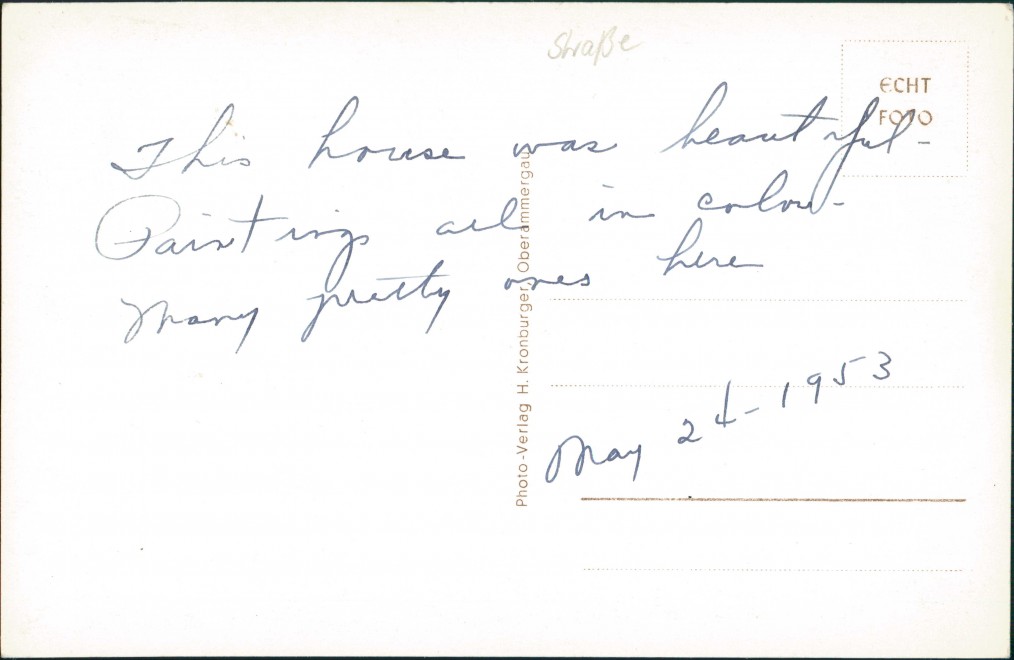 Straße
ECHT
FOTO
This house was beautiful-
Paintings all in colour-
Many pretty ones here
May 24-1953
Photo-Verlag H. Kronburger, Oberammergau